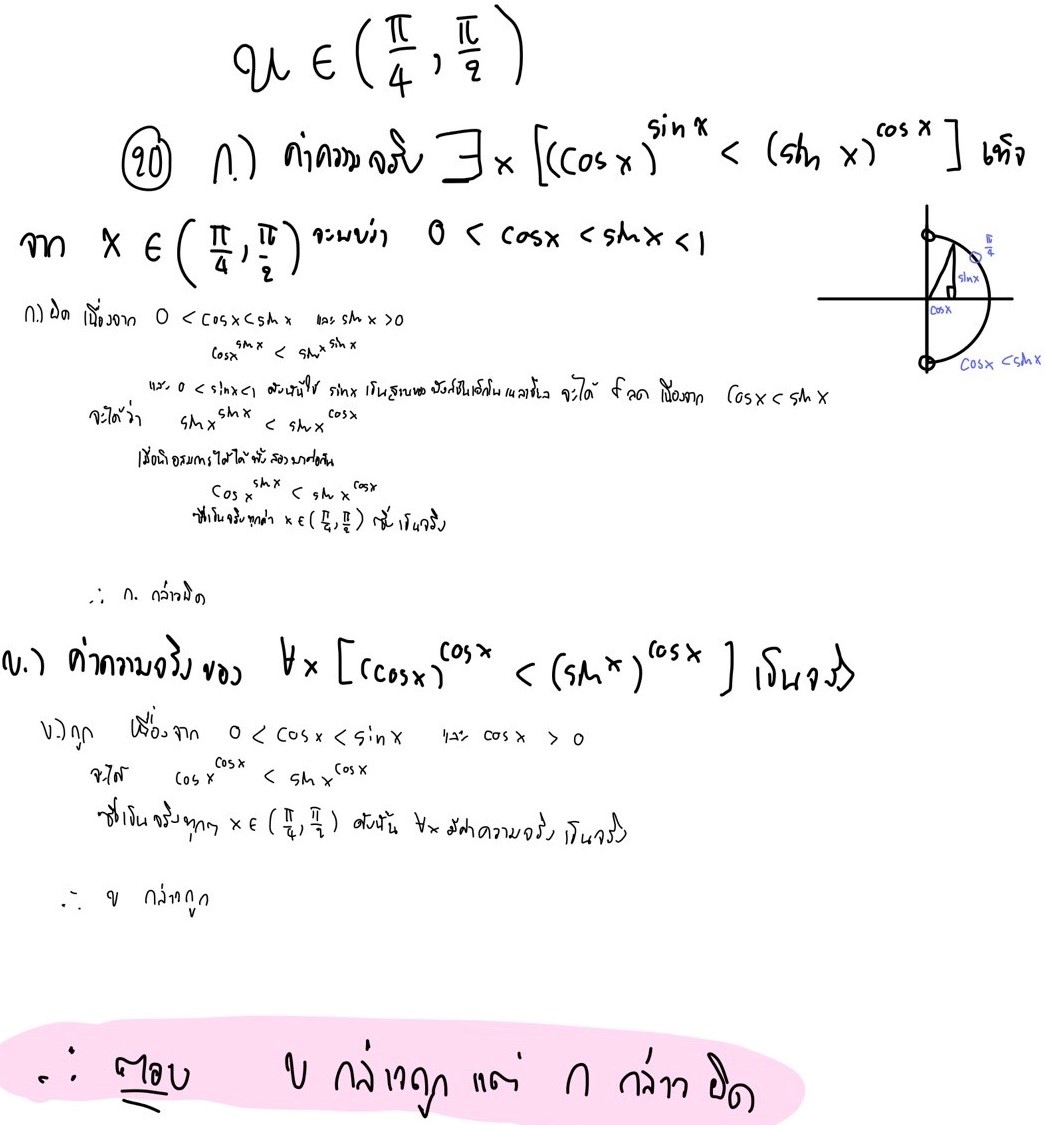 𝒰 ∈ (π/4, π/2)
20 ก.) ค่าความจริง ∃x [(cos x)^sin x < (sin x)^cos x] เท็จ
จาก x ∈ (π/4, π/2) จะพบว่า 0 < cosx < sinx < 1
π/4
sinx
cosx
cosx < sinx
ก.) ผิด เนื่องจาก 0 < cosx < sinx และ sinx > 0
cosx^sinx < sinx^sinx
และ 0 < sinx < 1 ดังนั้นใช้ sinx เป็นฐานของฟังก์ชันเอ็กโพเนนเชียล จะได้ f ลด เนื่องจาก cosx < sinx
จะได้ว่า sinx^sinx < sinx^cosx
เมื่อนำอสมการที่ได้ทั้งสองมาต่อกัน
cosx^sinx < sinx^cosx
ซึ่งเป็นจริงทุกค่า x ∈ (π/4, π/2) ซึ่งเป็นจริง
∴ ก. กล่าวผิด
ข.) ค่าความจริงของ ∀x [(cosx)^cosx < (sinx)^cosx] เป็นจริง
ข.) ถูก เนื่องจาก 0 < cosx < sinx และ cosx > 0
จะได้ cosx^cosx < sinx^cosx
ซึ่งเป็นจริงทุกๆ x ∈ (π/4, π/2) ดังนั้น ∀x มีค่าความจริง เป็นจริง
∴ ข กล่าวถูก
∴ ตอบ ข กล่าวถูก แต่ ก กล่าว ผิด